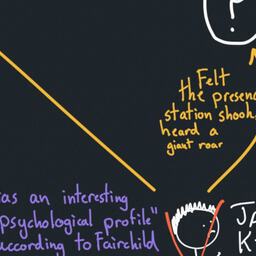 ?
Felt
the presenc
station shook,
heard a
giant roar
as an interesting
psychological profile"
according to Fairchild
JA
K